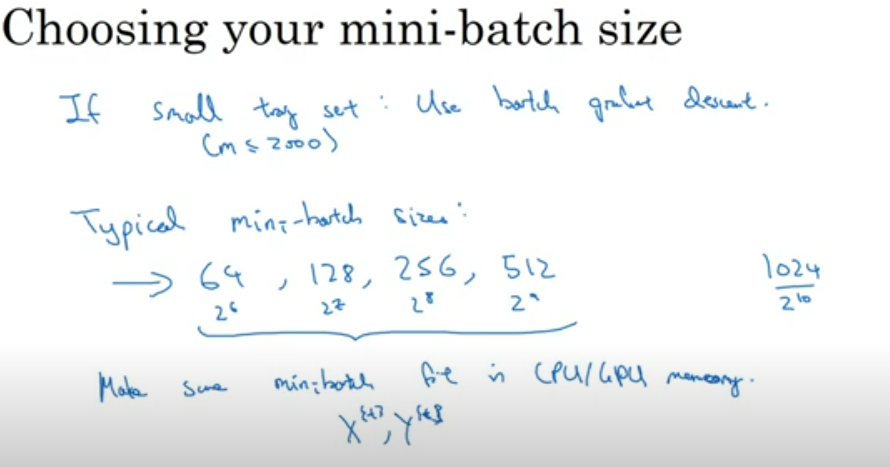 Choosing your mini-batch size
If small tray set : Use batch gradient descent.
(m ≤ 2000)
Typical mini-batch sizes:
→ 64, 128, 256, 512 1024
2⁶ 2⁷ 2⁸ 2⁹ 2¹⁰
Make sure mini-batch fit in CPU/GPU memory.
X^{t}, Y^{t}